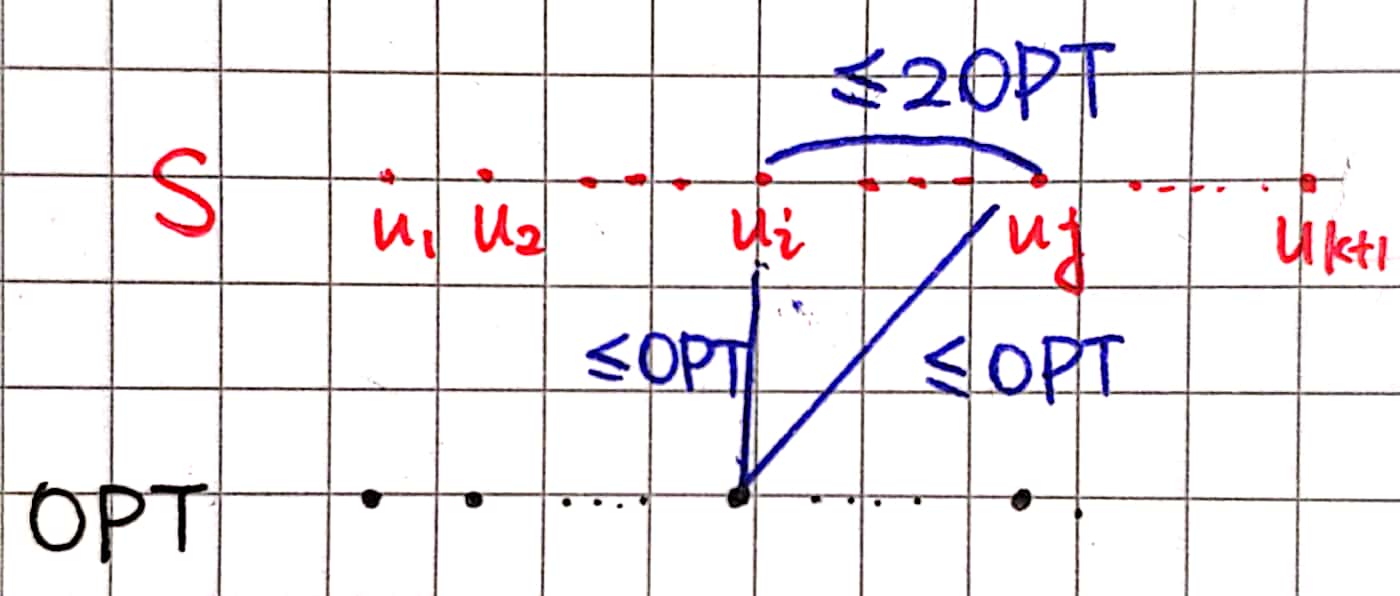 ≤2OPT
S
u₁ u₂ uᵢ uⱼ uₖ₊₁
≤OPT ≤OPT
OPT